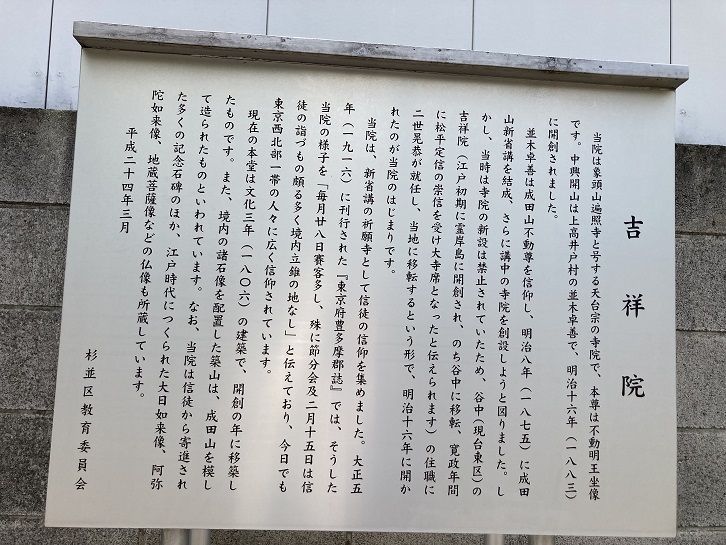 吉祥院
当院は象頭山遍照寺と号する天台宗の寺院で、本尊は不動明王坐像
です。中興開山は上高井戸村の並木卓善で、明治十六年（一八八三）
に開創されました。
並木卓善は成田山不動尊を信仰し、明治八年（一八七五）に成田
山新省講を結成、さらに講中の寺院を創設しようと図りました。し
かし、当時は寺院の新設は禁止されていたため、谷中（現台東区）の
吉祥院（江戸初期に霊岸島に開創され、のち谷中に移転、寛政年間
に松平定信の崇信を受け大寺席となったと伝えられます）の住職に
二世晃恭が就任し、当地に移転するという形で、明治十六年に開か
れたのが当院のはじまりです。
当院は、新省講の祈願寺として信徒の信仰を集めました。大正五
年（一九一六）に刊行された『東京府豊多摩郡誌』では、そうした
当院の様子を「毎月廿八日賽客多し、殊に節分会及二月十五日は信
徒の詣づもの頗る多く境内立錐の地なし」と伝えており、今日でも
東京西北部一帯の人々に広く信仰されています。
現在の本堂は文化三年（一八〇六）の建築で、開創の年に移築し
たものです。また、境内の諸石像を配置した築山は、成田山を模し
て造られたものといわれています。なお、当院は信徒から寄進され
た多くの記念石碑のほか、江戸時代につくられた大日如来像、阿弥
陀如来像、地蔵菩薩像などの仏像も所蔵しています。
平成二十四年三月
杉並区教育委員会